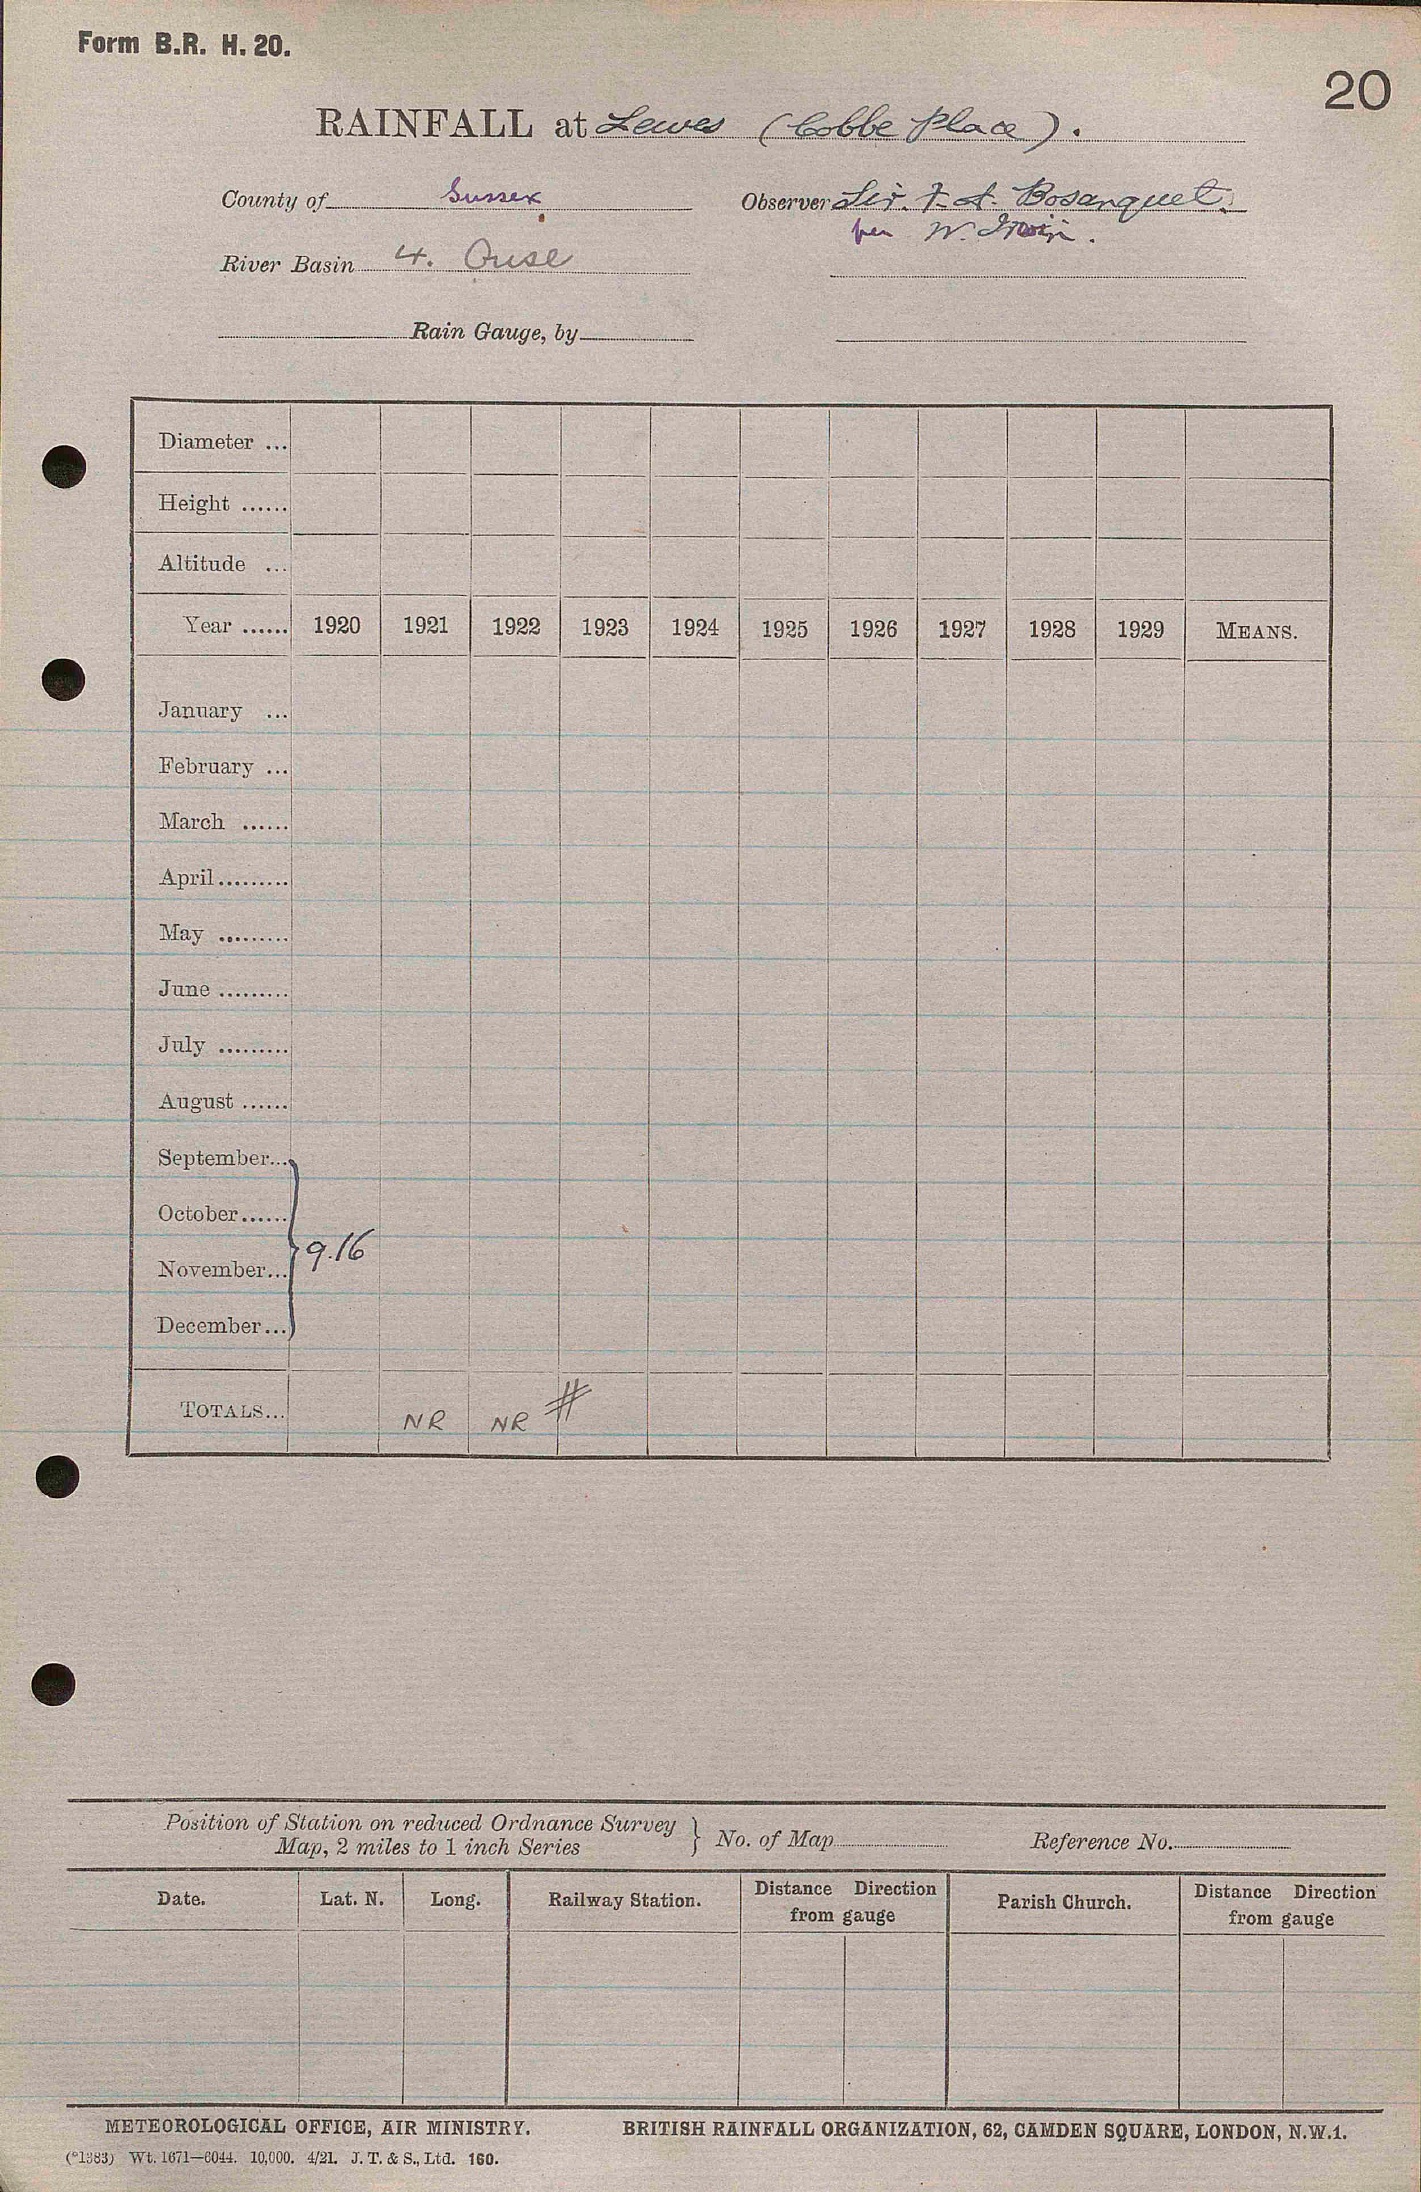 Form B.R. H. 20.
20
RAINFALL at Lewes (Cobbe Place).
County of Sussex
Observer Sir. F. A. Bosanquet.
per W.
River Basin 4. Ouse
Rain Gauge, by
Diameter ...
Height ......
Altitude ...
Year ...... 1920 1921 1922 1923 1924 1925 1926 1927 1928 1929 MEANS.
January ...
February ...
March ......
April.........
May .........
June .........
July .........
August ......
September...
October......
9.16
November...
December...
TOTALS... NR NR #
Position of Station on reduced Ordnance Survey
Map, 2 miles to 1 inch Series } No. of Map Reference No.
Date. Lat. N. Long. Railway Station. Distance Direction from gauge Parish Church. Distance Direction from gauge
METEOROLOGICAL OFFICE, AIR MINISTRY. BRITISH RAINFALL ORGANIZATION, 62, CAMDEN SQUARE, LONDON, N.W.1.
(*1383) Wt. 1671—6044. 10,000. 4/21. J. T. & S., Ltd. 160.